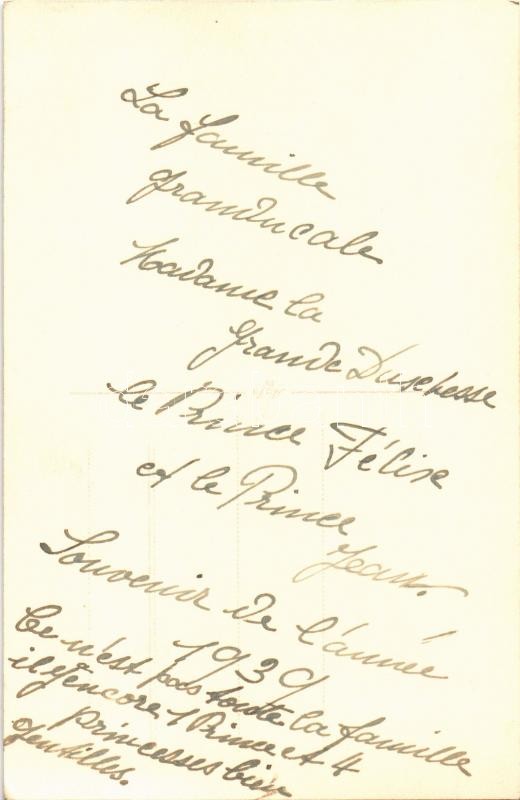 La famille
granducale
Madame la
grande Duschesse
le Prince Félixe
et le Prince
Jean.
Souvenir de l'année
1939
Ce n'est pas toute la famille
il y encore 1 Prince et 4
princesses bien
gentilles.